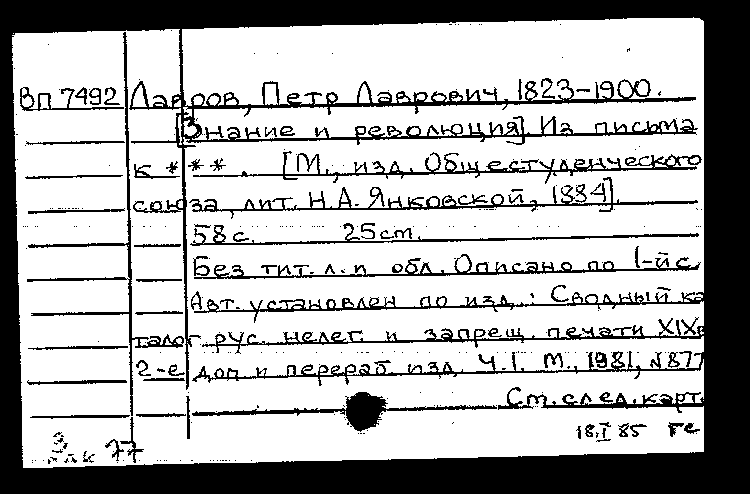 ВП 7492 Лавров, Петр Лаврович, 1823-1900.
[Знание и революция]. Из письма
к ***. [М., изд. Общестуденческого
союза, лит. Н.А. Янковской, 1884].
58 с. 25 см.
Без тит. л. и обл. Описано по 1-й с.
Авт. установлен по изд.: Сводный ка
талог рус. нелег. и запрещ. печати XIX в
2-е доп и перераб. изд. Ч.I. М., 1981, №877
См. след. карт.
18.I 85 Ге
77